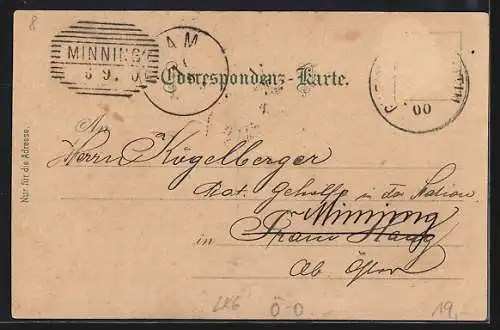 8
MINNING
6 9. 0
AM
Correspondenz-Karte.
00
Nur für die Adresse.
An
Herrn Kögelberger
Bot. Gehülfe in der Station
Minning
in
Ob. Östr
Ö-O
19,-